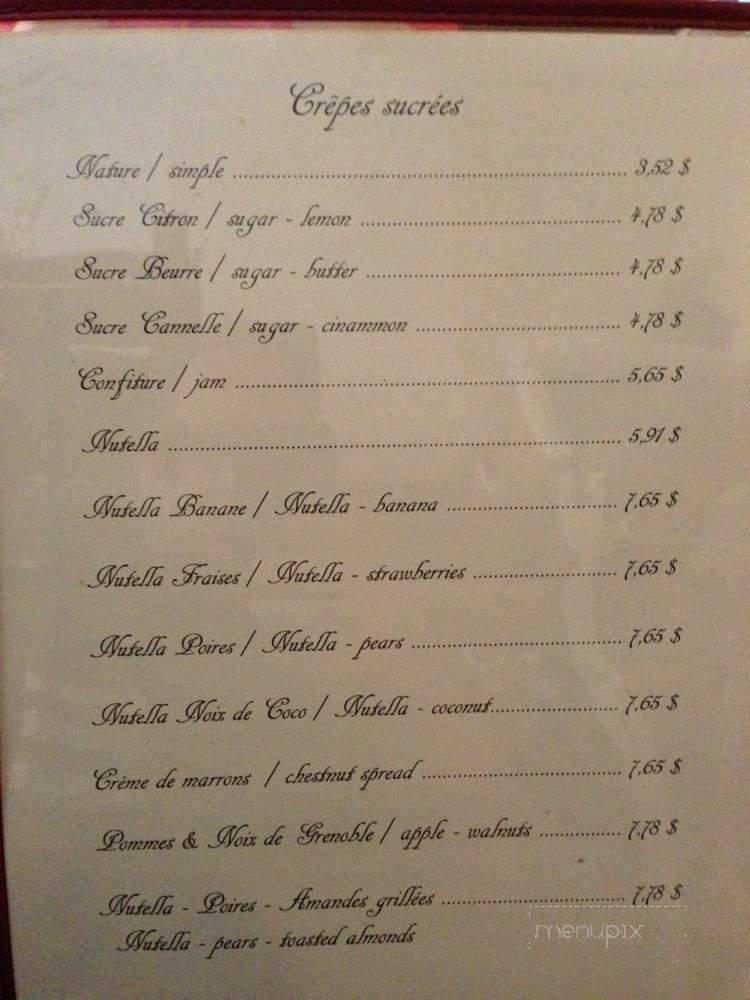 Crêpes sucrées
Nature / simple ........................ 3,52 $
Sucre Citron / sugar - lemon ........................ 4,78 $
Sucre Beurre / sugar - butter ........................ 4,78 $
Sucre Cannelle / sugar - cinammon ........................ 4,78 $
Confiture / jam ........................ 5,65 $
Nutella ........................ 5,91 $
Nutella Banane / Nutella - banana ........................ 7,65 $
Nutella Fraises / Nutella - strawberries ........................ 7,65 $
Nutella Poires / Nutella - pears ........................ 7,65 $
Nutella Noix de Coco / Nutella - coconut........................ 7,65 $
Crème de marrons / chestnut spread ........................ 7,65 $
Pommes & Noix de Grenoble / apple - walnuts ................ 7,78 $
Nutella - Poires - Amandes grillées ........................ 7,78 $
Nutella - pears - toasted almonds
menupix